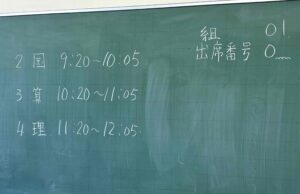 組 01
出席番号 0
2 国 9:20~10:05
3 算 10:20~11:05
4 理 11:20~12:05